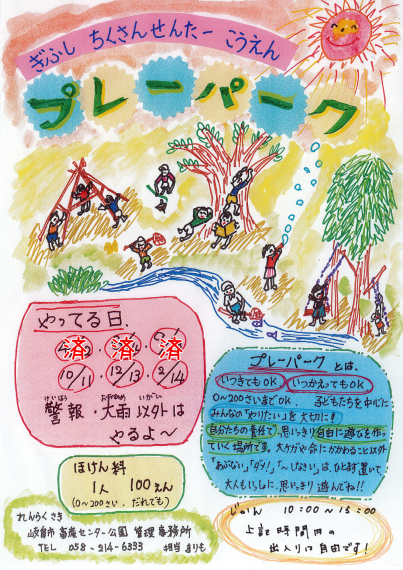 ぎふし ちくさんせんたー こうえん
プレーパーク
やってる日.
済 済 済
10/11 12/13 2/14
けいほう おおあめ いがい
警報・大雨以外は
やるよ〜
ほけん料
1人 100えん
(0〜200さい.だれでも)
れんらくさき
岐阜市 畜産センター公園 管理事務所
TEL 058-214-6393 担当 まりも
プレーパークとは、
いつきてもOK いつかえってもOK
0〜200さいまでOK. 子どもたちを中心に
みんなの「やりたい」を大切に!
自分たちの責任で、思いっきり自由に遊びを作っ
ていく場所です。大ケガや命にかかわること以外
「あぶない」「ダメ」「〜しなさい」は、ひとまず置いて、
大人もいっしょに、思いっきり遊んでね!!
じかん 10:00〜15:00
上記時間内の
出入りは自由です!